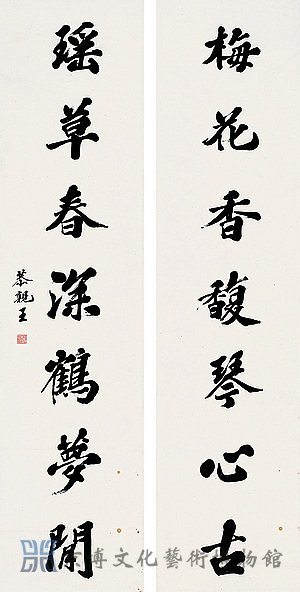 梅花香馥琴心古
瑶草春深鶴夢閒
恭親王
博文化藝術博物館